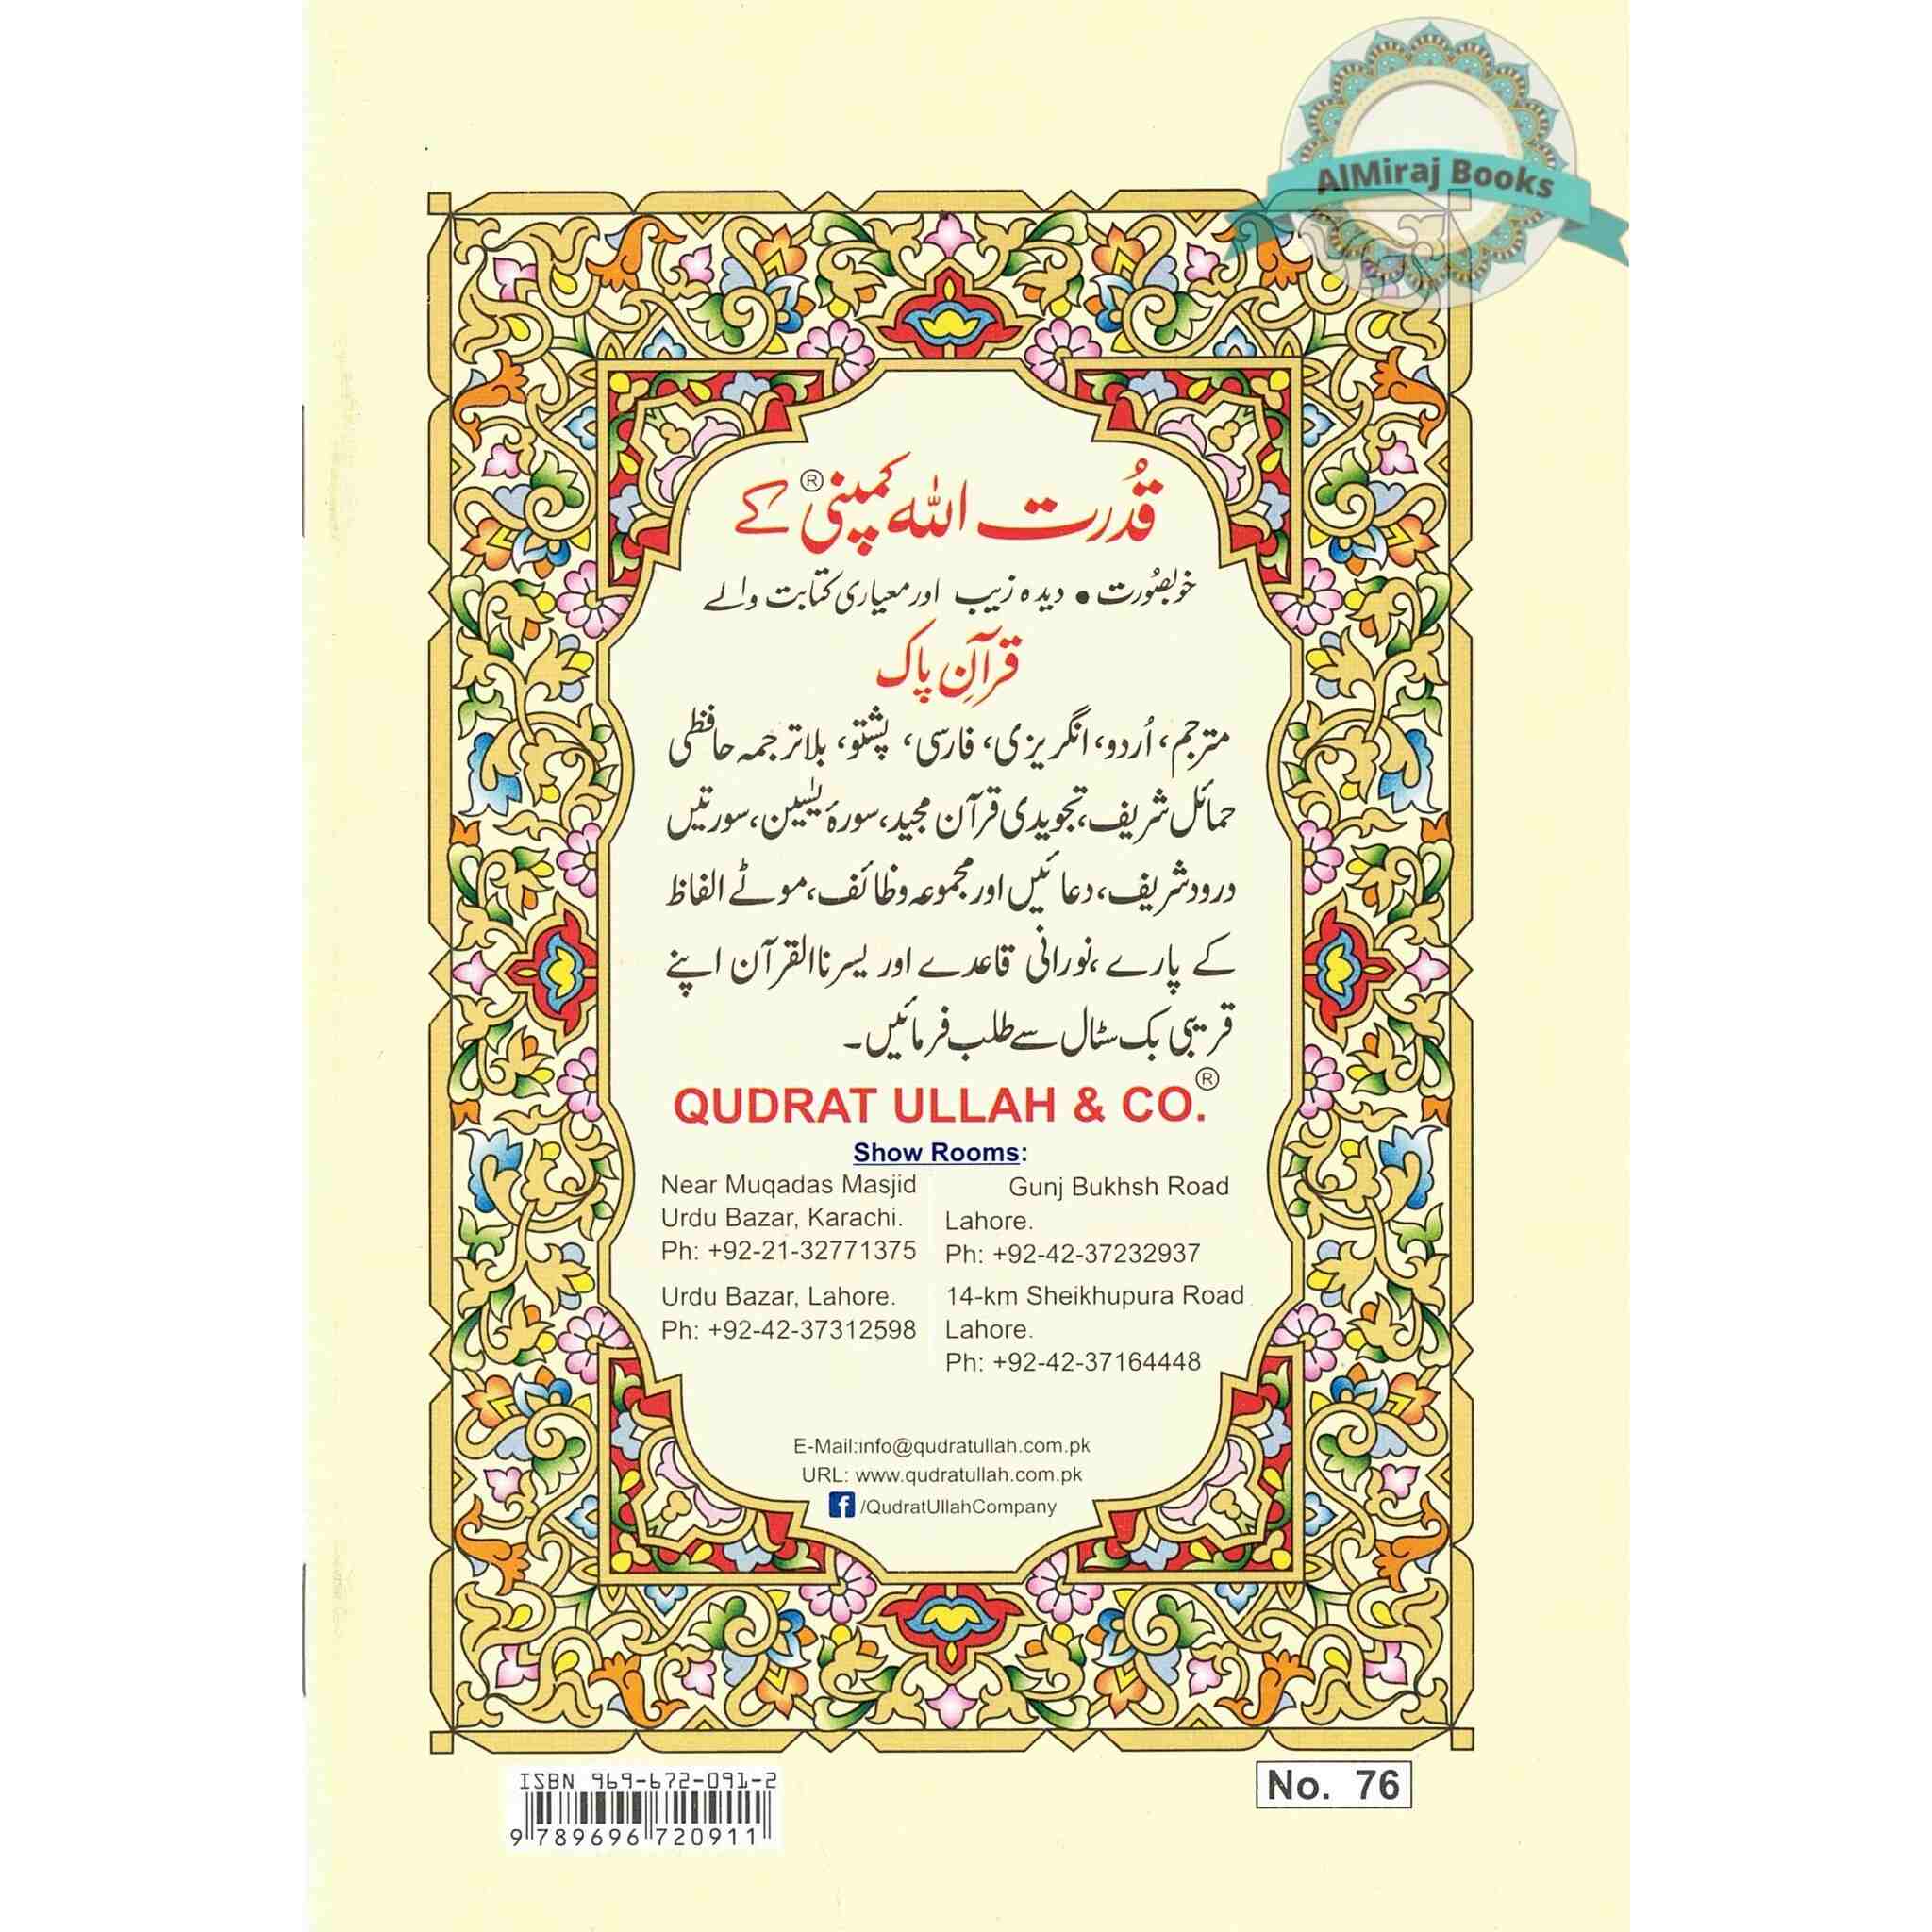 AlMiraj Books
قُدرت اللہ کمپنی® کے
خوبصُورت • دیدہ زیب اور معیاری کتابت والے
قرآنِ پاک
مترجم، اُردو، انگریزی، فارسی، پشتو، بلاترجمہ حافظی
حمائل شریف، تجویدی قرآن مجید، سورۂ یٰسین، سورتیں
درود شریف، دعائیں اور مجموعہ وظائف، موٹے الفاظ
کے پارے، نورانی قاعدے اور یسرناالقرآن اپنے
قریبی بک سٹال سے طلب فرمائیں۔
QUDRAT ULLAH & CO.®
Show Rooms:
Near Muqadas Masjid
Urdu Bazar, Karachi.
Ph: +92-21-32771375
Urdu Bazar, Lahore.
Ph: +92-42-37312598
Gunj Bukhsh Road
Lahore.
Ph: +92-42-37232937
14-km Sheikhupura Road
Lahore.
Ph: +92-42-37164448
E-Mail:info@qudratullah.com.pk
URL: www.qudratullah.com.pk
f /QudratUllahCompany
ISBN 969-672-091-2
9 789696 720911
No. 76